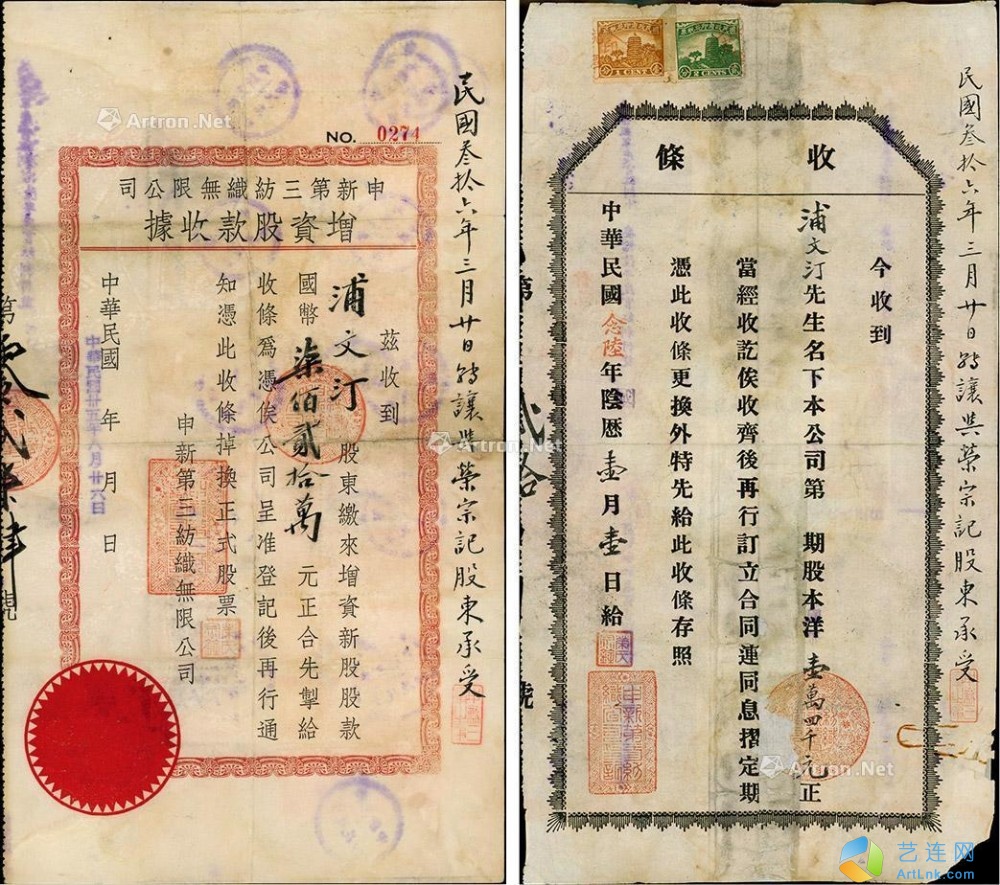 NO. 0274
申新第三紡織無限公司
增資股款收據
茲收到
浦文汀 股東繳來增資新股股款
國幣柒佰貳拾萬元正合先掣給
收條爲憑俟公司呈准登記後再行通
知憑此收條掉換正式股票
申新第三紡織無限公司
中華民國 年 月 日
民國叁拾六年三月廿日轉讓與榮宗記股東承受
Artron.Net
Artron.Net
1 CENT
2 CENTS
收條
今收到
浦文汀先生名下本公司第 期股本洋壹萬四千元正
當經收訖俟收齊後再行訂立合同連同息摺定期
憑此收條更換外特先給此收條存照
中華民國念陸年陰歷壹月壹日給
民國叁拾六年三月廿日轉讓與榮宗記股東承受
第
號
Artron.Net
Artron.Net
艺连网
ArtLnk.com